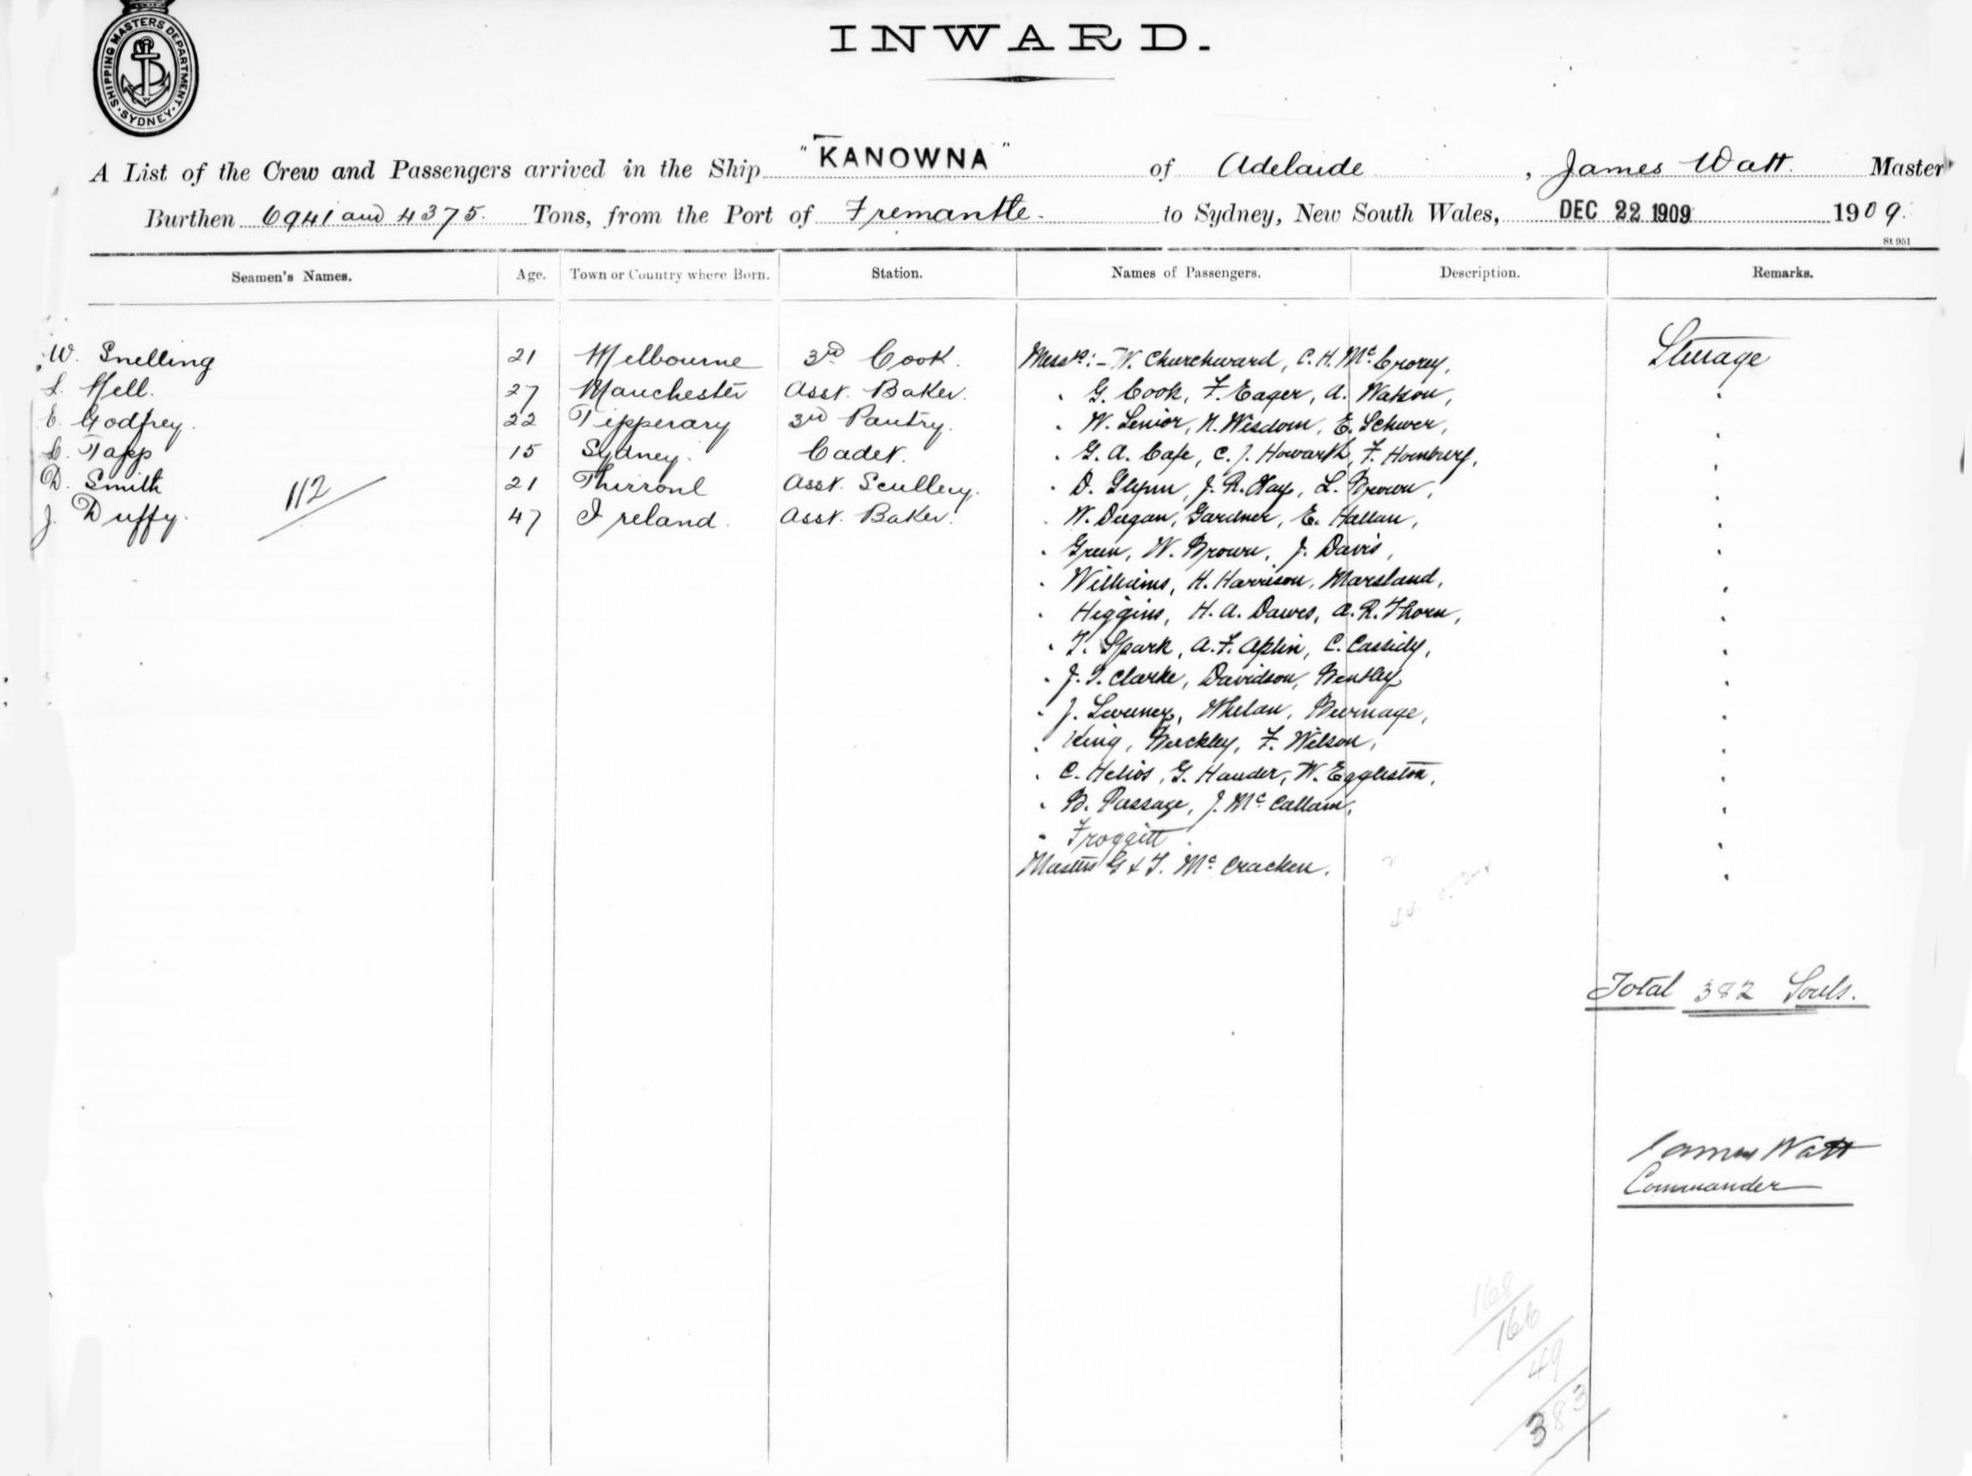 SHIPPING MASTERS DEPARTMENT. SYDNEY.
INWARD.
A List of the Crew and Passengers arrived in the Ship "KANOWNA" of Adelaide, James Watt. Master
Burthen 6941 and 4375. Tons, from the Port of Fremantle. to Sydney, New South Wales, DEC 22 1909 1909.
St 951
Seamen's Names. Age. Town or Country where Born. Station. Names of Passengers. Description. Remarks.
W. Snelling 21 Melbourne 3rd Cook. Messrs:- W. Churchward, C. H. McCrorey, Steerage
L. Hell. 27 Manchester Asst. Baker. " G. Cook, F. Eager, A. Watson, "
E. Godfrey. 22 Tipperary 3rd Pantry. " W. Senior, N. Wisdom, E. Schwer, "
C. Tapp 15 Sydney. Cadet. " G. A. Cafe, C. J. Howarth, F. Homburg, "
D. Smith 21 Thirroul Asst. Scullery. " D. Glynn, J. R. Hay, L. Brown, "
112
J. Duffy. 47 Ireland. Asst. Baker. " W. Dugan, Gardner, E. Hallan, "
" Green, W. Brown, J. Davis, "
" Williams, H. Harrison, Marsland, "
" Higgins, H. A. Dawes, A. R. Thorn, "
" T. Spark, A. F. Aplin, C. Cassidy, "
" J. T. Clarke, Davidson, Bentley "
" J. Sweeney, Whelan, Burnage, "
" King, Buckley, F. Wilson, "
" C. Helios, G. Hander, W. Eggleston, "
" B. Passage, J. McCallam, "
" Froggitt. "
Masters G & T. McCracken. "
Total 382 Souls.
James Watt
Commander
168
166
49
383